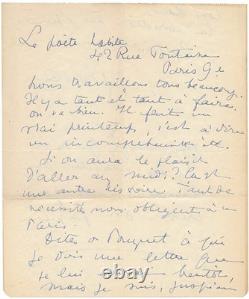 Le poète habite
42 Rue Fontaine
Paris 9e
Nous travaillons tous beaucoup.
Il y a tant et tant à faire,
on va bien. Il fait un
vrai printemps, c'est à dire
un incompréhensible été.
Si on aura le plaisir
d'aller au midi? C'est
une autre histoire. Tant de
nécessité nous obligent à
Paris.
Dites à à qui
je dois une lettre que
je lui bientôt,
mais je suis, jusqu'au